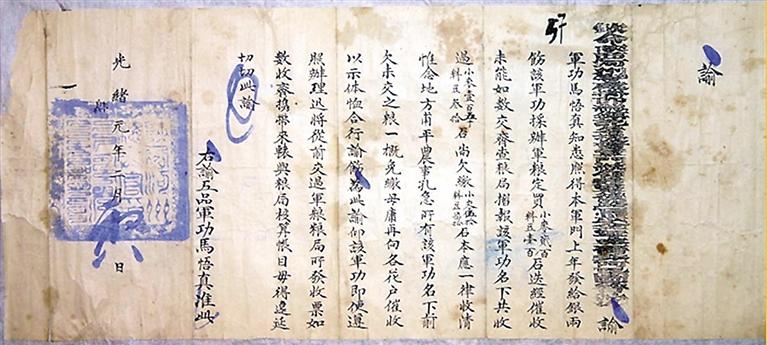 諭
諭
軍功馬悟真知悉照得本軍門上年發給銀兩
飭該軍功採辦軍粮定買小麥貳百料豆壹百石迭經催收
未能如數交齊查粮局摺報該軍功名下共收
過小麥壹百五料豆叁拾石尚欠繳小麥伍拾料豆柒拾石本應一律收清
惟念地方甫平農事孔急所有該軍功名下前
欠未交之粮一概免繳毋庸再向各花戶催收
以示体恤合行諭飭為此諭仰該軍功即便遵
照辦理迅將從前交過軍粮粮局所發收票如
數收齊携帶來轅與粮局核算帳目毋得遲延
切切此諭
右諭五品軍功馬悟真准此
光緒元年二月 日